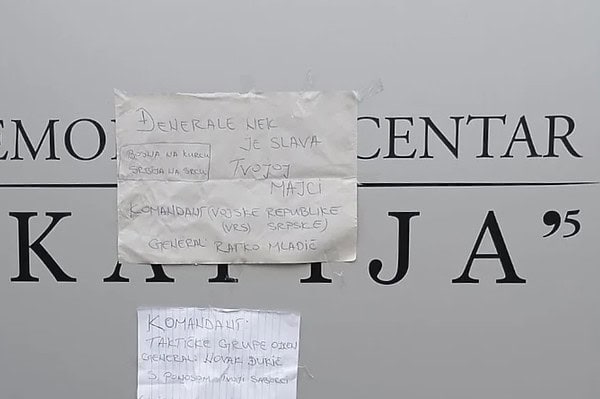 EMO CENTAR
KAPIJA '95
ĐENERALE NEK
JE SLAVA
BOSNA NA KURCU
SRBIJA NA SRCU
TVOJOJ
MAJCI
KOMANDANT (VOJSKE REPUBLIKE
(VRS) SRPSKE)
GENERAL RATKO MLADIĆ
KOMANDANT:
TAKTIČKE GRUPE OZREN
GENERAL: NOVAK ĐUKIĆ
S PONOSOM TVOJI SABORCI